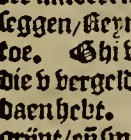 seggen/Reyn
toe. Ghi v
die v vergeld
daen hebt.